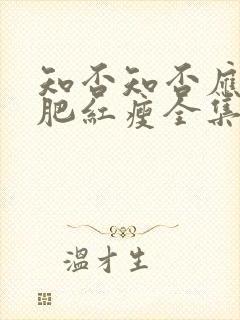 知否知否應
肥紅瘦全集
溫才生